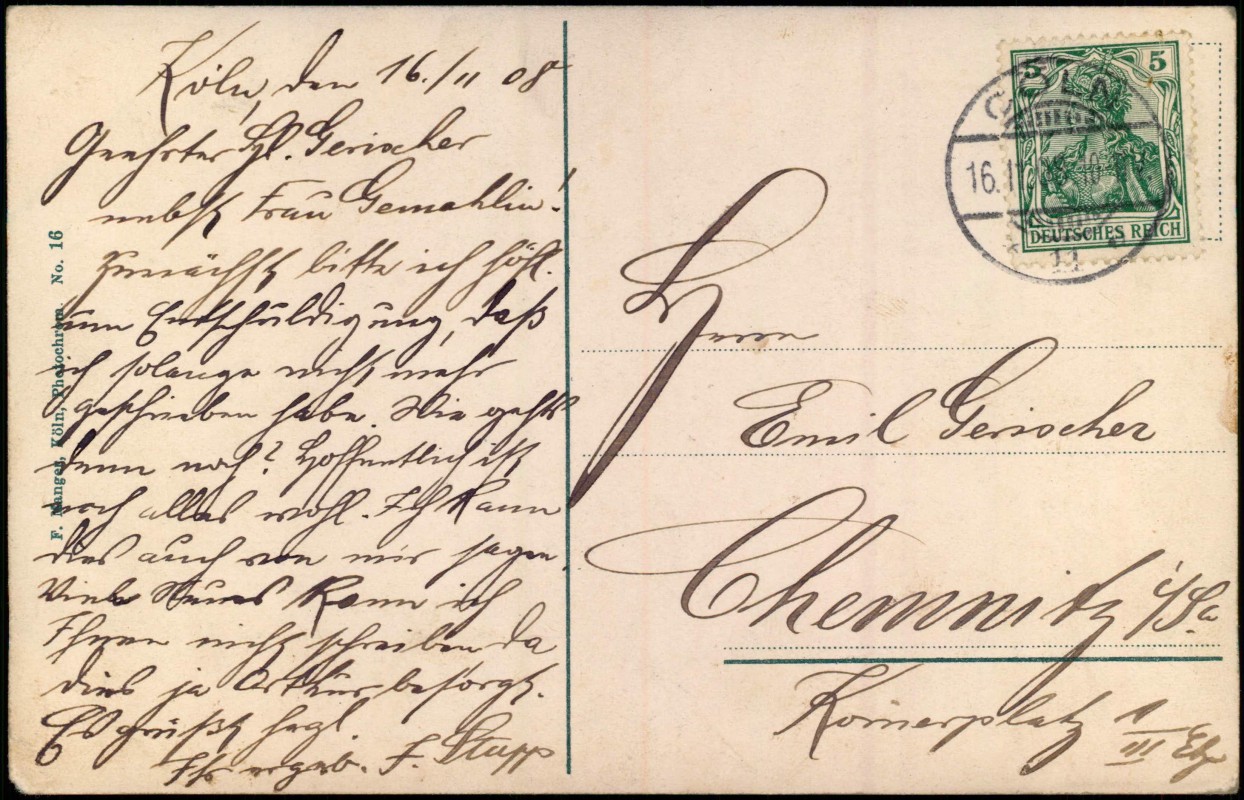 Köln, den 16./11 08
Geehrter H. Gerischer
nebst Frau Gemahlin!
Zunächst bitte ich höfl.
um Entschuldigung, daß
ich solange nicht mehr
geschrieben habe. Wie gehts
denn noch? Hoffentlich ist
noch alles wohl. Ich kann
dies auch von mir sagen.
Viel Neues kann ich
Ihnen nicht schreiben da
dies ja Arthur besorgt.
Es grüßt hrzl.
Ihr ergeb. F. Stupp
F. Manger, Köln, Photochrom. No. 16
5 5
DEUTSCHES REICH
CÖLN
16.11.08
11
Herrn
Emil Gerischer
Chemnitz i/Sa
Körnerplatz
III Etg